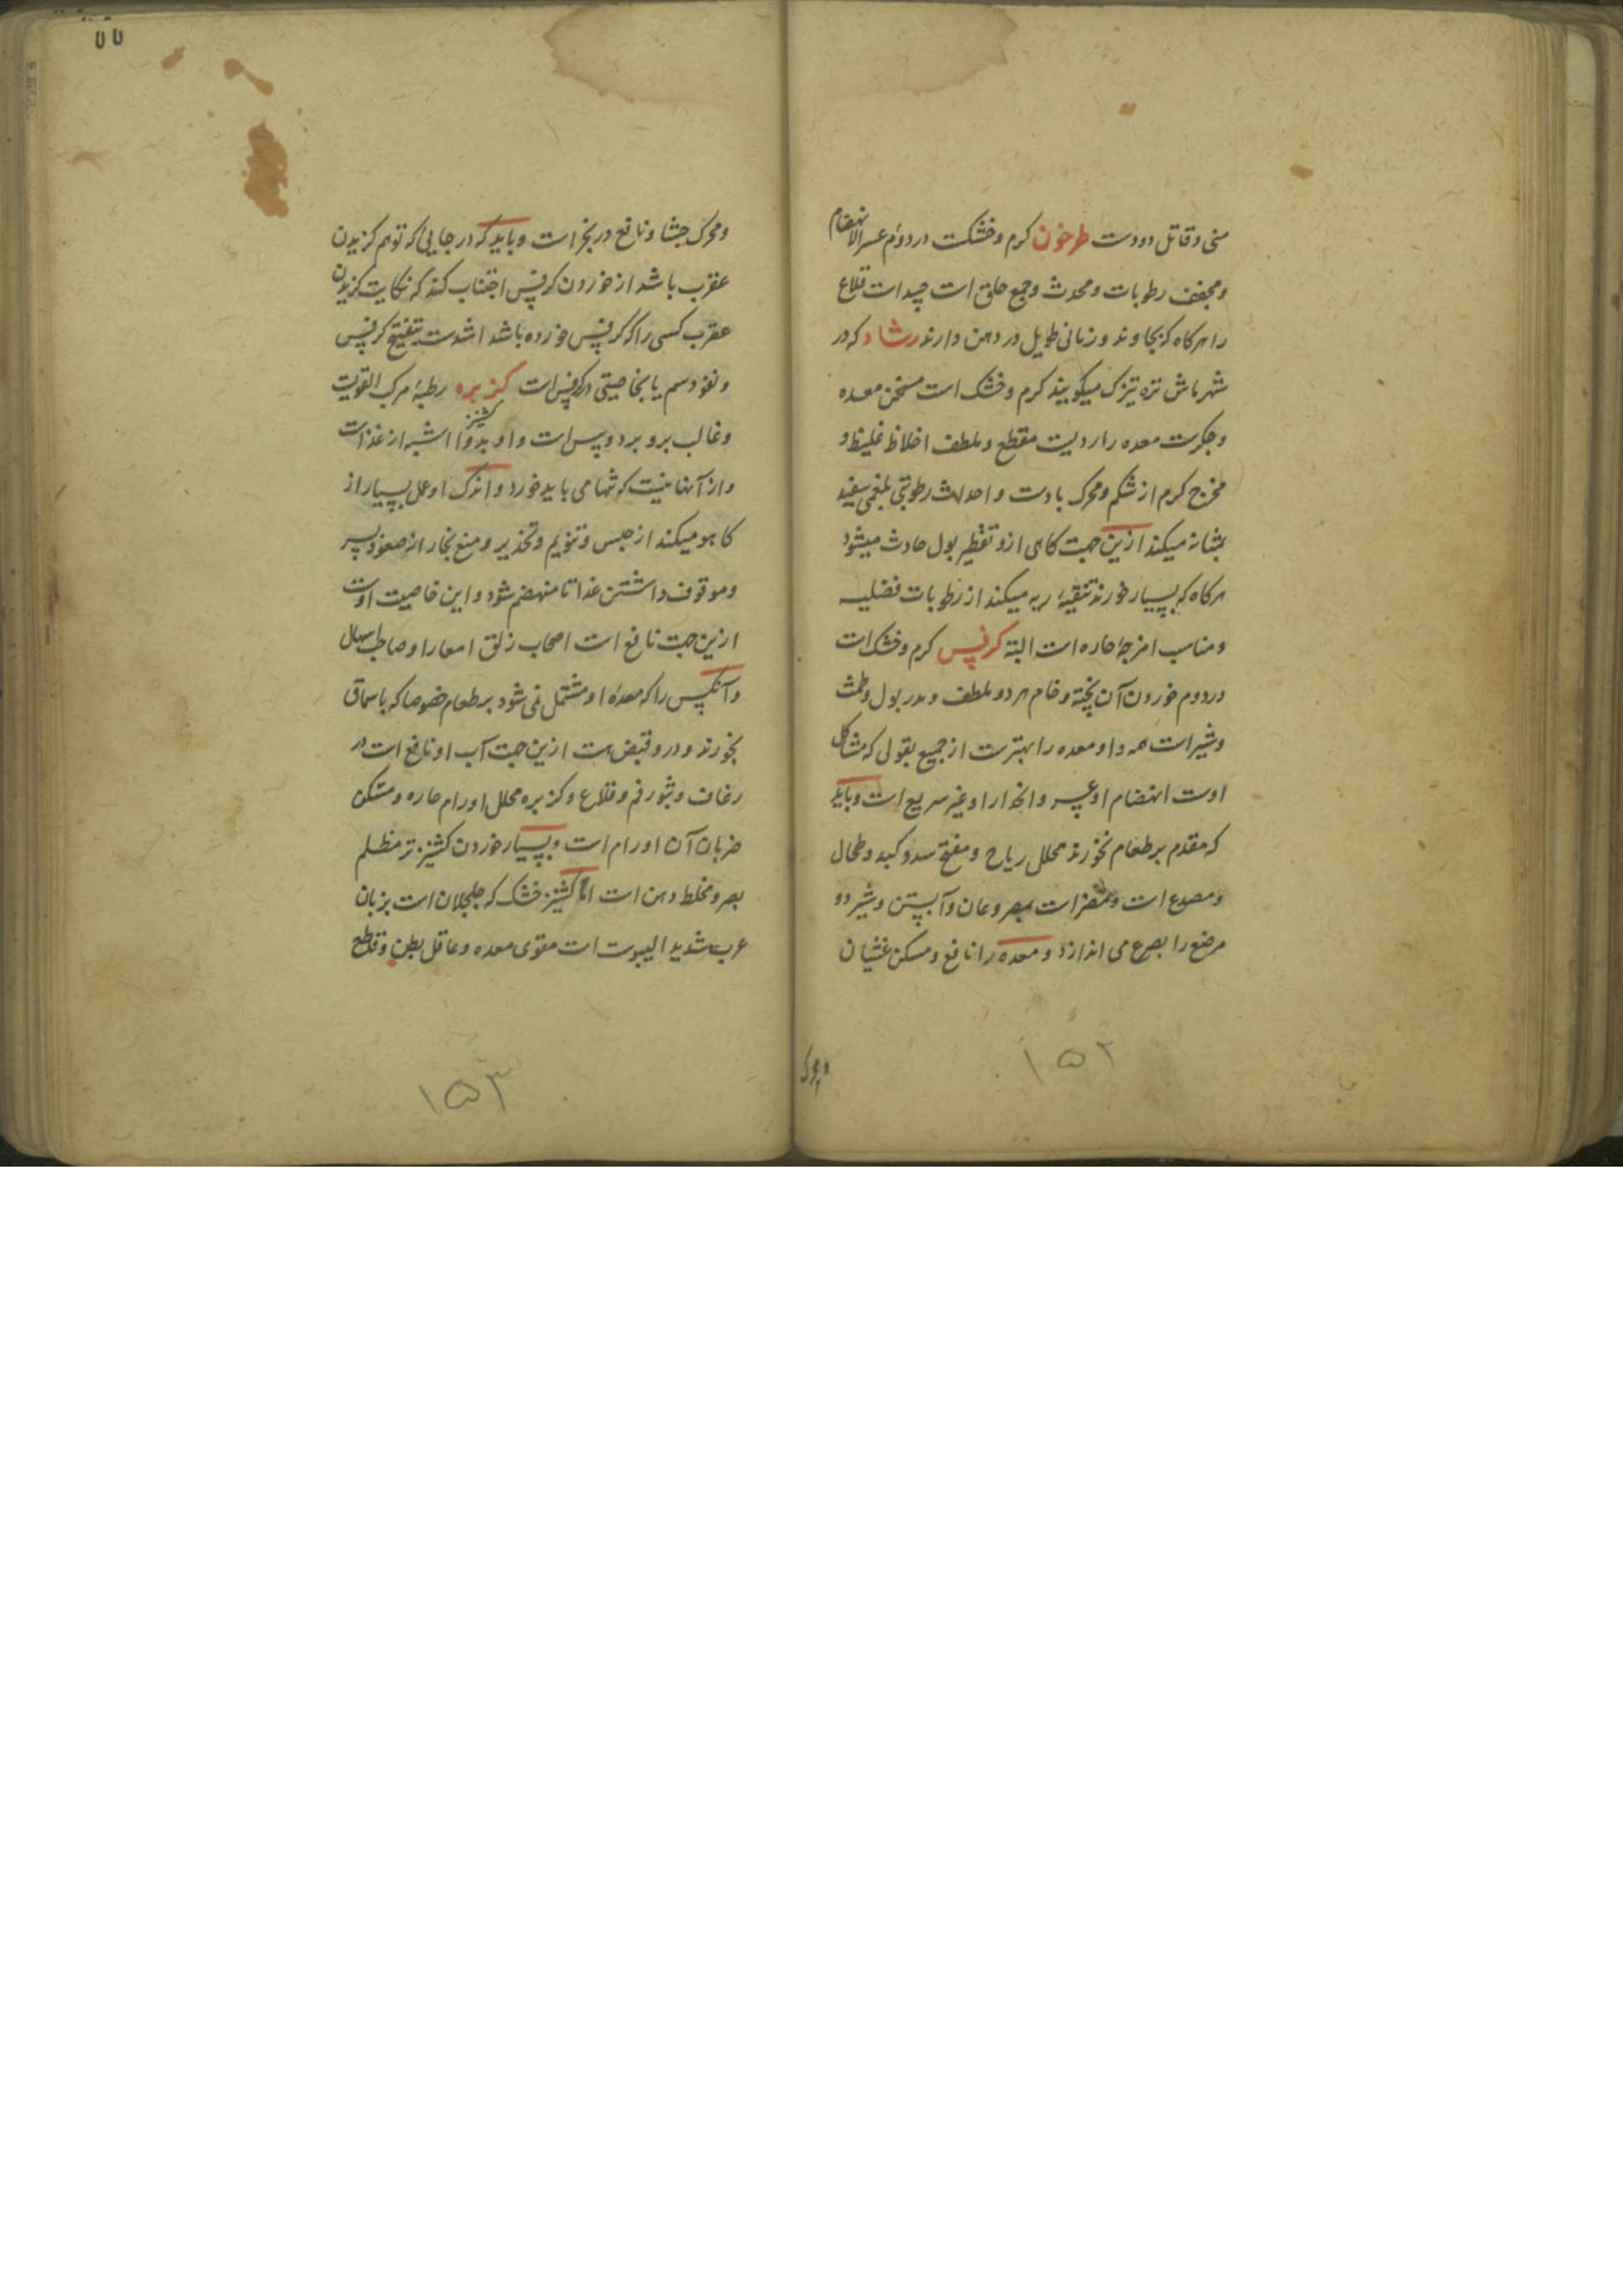 منی و قاتل دودست طرخون کرم و خشکست در دوم عسر الانهضام
و مجفف رطوبات و محدث وجع حلق است جیدست قلاع
را هرکاه که بخاوند و زمانی طویل در دهن دارند رشاد که در
شهر ماش تره تیزک میکویند کرم و خشک است مسخن معده
و جکرست معده را ردیست مقطع و ملطف اخلاط غلیظ و
مخرج کرم از شکم و محرک بادست و احداث رطوبتی بلغمی سفید
بمثانه میکند ازین جهت کاهی ازو تقطیر بول حادث میشود
هرکاه که بسیار خورند تنقیهٔ ریه میکند از رطوبات فضلیه
و مناسب امزجهٔ حاره است البته کرفس کرم و خشک است
در دوم خوردن آن پخته و خام هر دو ملطف و مدر بول و طمث
و شیر است همه و او معده را بهترست از جمیع بقولی که مشاکل
اوست انهضام او عسر و انحدار او غیر سریع است و باید
که مقدم بر طعام نخورند محلل ریاح و مفتح سدد کبد و طحال
و مصدع است و مضر است بمصروعان و آبستن و شیر دو
مرضع را بصرع می اندازد و معده را نافع و مسکن غثیان
و محرک
۱۵۲
و محرک جشا و نافع در بخر است و باید که در جایی که توهم کزیدن
عقرب باشد از خوردن کرفس اجتناب کند که نکایت کزیدن
عقرب کسی را که کرفس خورده باشد اشدست بتفتیح کرفس
و نفوذ سم یا بخاصیتی در کرفس است کزبره رطبهٔ مرکب القویست
کشنیز
و غالب برو برد و یبس است و او بدوا اشبه از غذاست
و از آنها نیست که تنها می باید خورد و اندک او عمل بسیار از
کاهو میکند از حبس و تنویم و تخدیر و منع بخار از صعود بسر
و موقوف داشتن غذا تا منهضم شود و این خاصیت اوست
ازین جهت نافع است اصحاب زلق امعا را و صاحب اسهال
و آنکس را که معدهٔ او مشتمل نمی شود بر طعام خصوصا که با سماق
بخورند و در و قبض هست ازین جهت آب او نافع است در
رعاف و بثور فم و قلاع و کزبره محلل اورام حاره و مسکن
ضربان آن اورام است و بسیار خوردن کشنیز تر مظلم
بصر و مخلط ذهن است اما کشنیز خشک که جلجلان است بزبان
عرب شدید الیبوست است مقوی معده و عاقل بطن و قاطع
۱۵۳